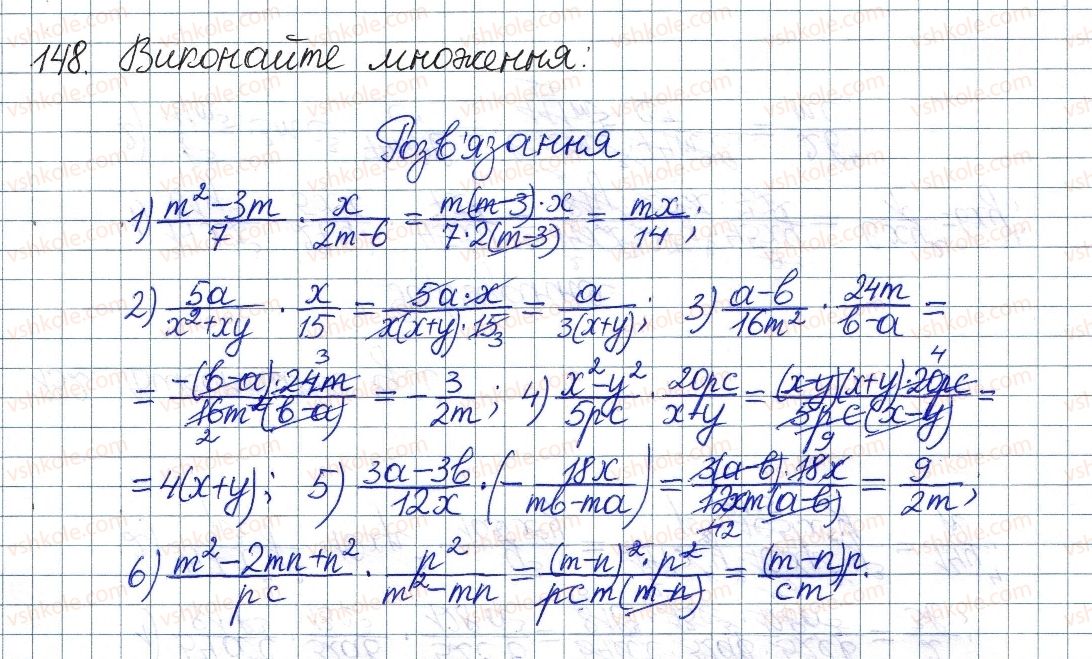 148. Виконайте множення:
Розв'язання
1) (m² - 3m)/7 · x/(2m - 6) = (m(m - 3) · x)/(7 · 2(m - 3)) = mx/14;
2) 5a/(x² + xy) · x/15 = (5a · x)/(x(x + y) · 15) 3 = a/(3(x + y)); 3) (a - b)/16m² · 24m/(b - a) =
= (-(b - a) · 24m 3)/(16m² (b - a) 2) = - 3/2m; 4) (x² - y²)/5pc · 20pc/(x + y) = ((x - y)(x + y) · 20pc 4)/(5pc(x - y)) =
= 4(x + y); 5) (3a - 3b)/12x · (- 18x/(mb - ma)) = (3(a - b) · 18x 9)/(12xm(a - b) 12) = 9/2m;
6) (m² - 2mn + n²)/pc · p²/(m² - mn) = ((m - n)² · p²)/(pcm(m - n)) = (m - n)p/cm.